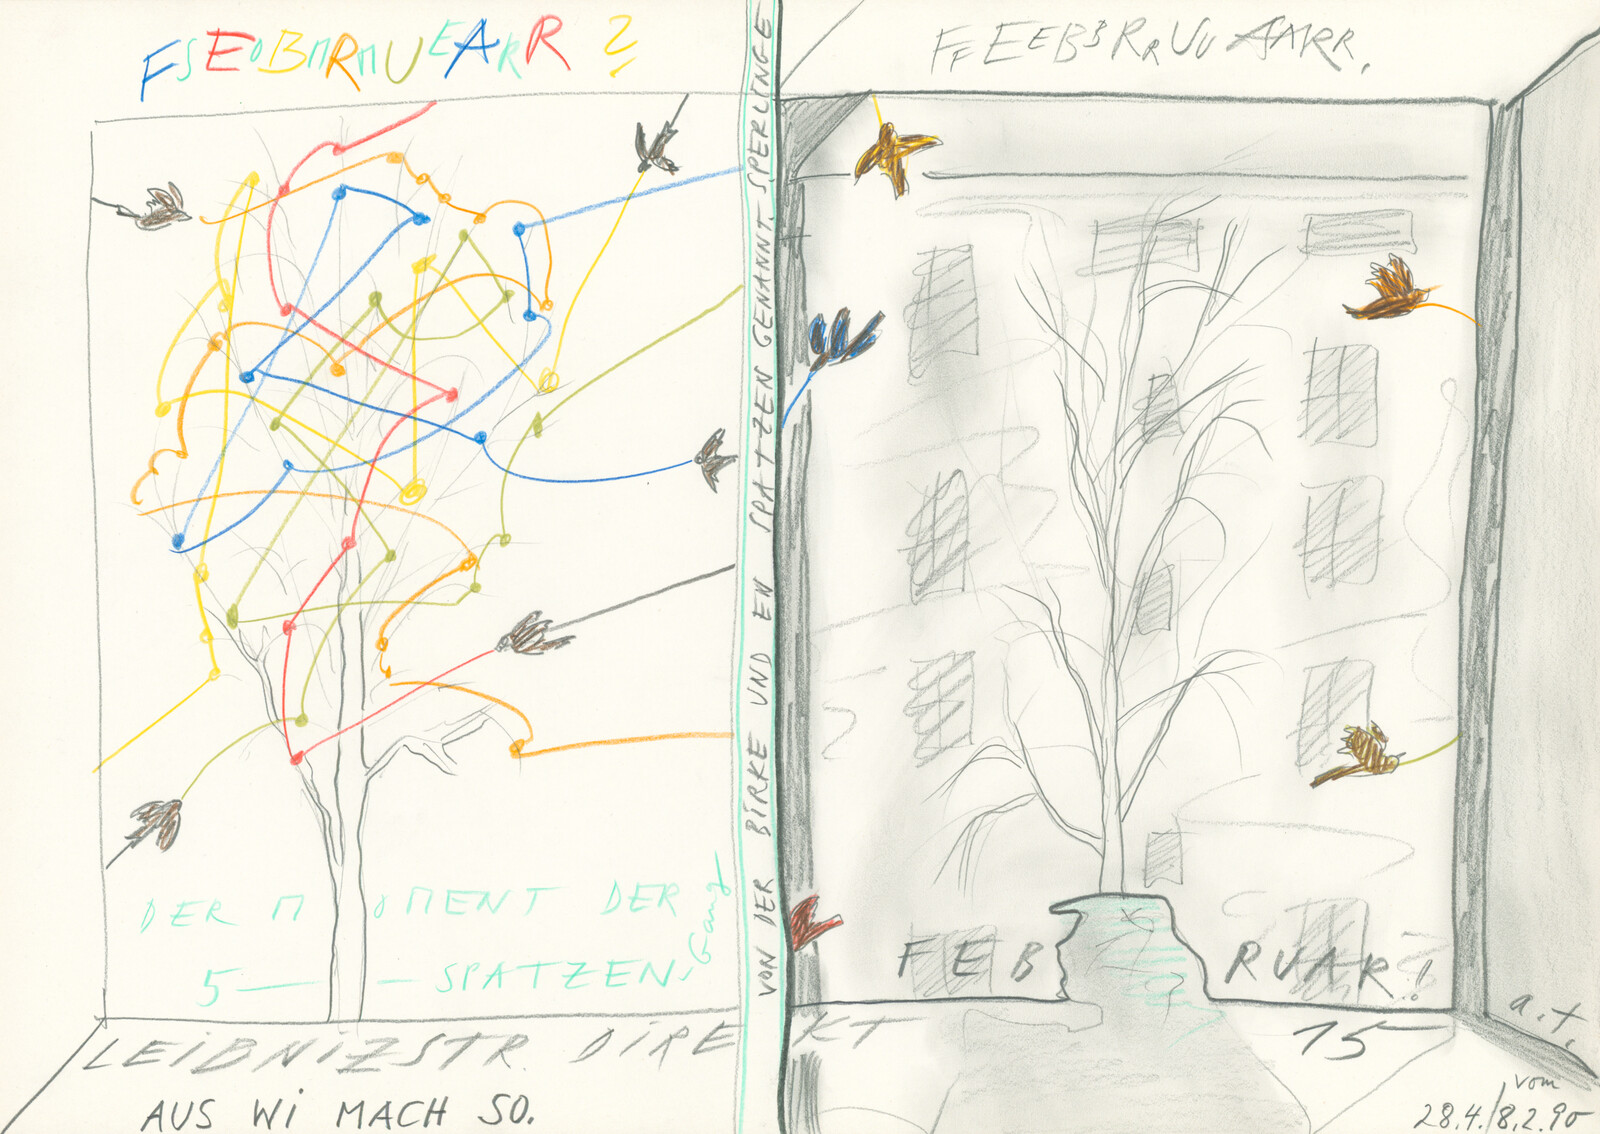 FSEOBMRMUEARR ?
FFEEBBRRUUAARR.
VON DER BIRKE UND EN SPATZEN GENANNT SPERLINGE
DER MOMENT DER
5 — — SPATZEN, Gang
FEB RUAR!
LEIBNIZSTR. DIREKT 15
AUS WI MACH SO.
a.t.
vom
28.4./8.2.90